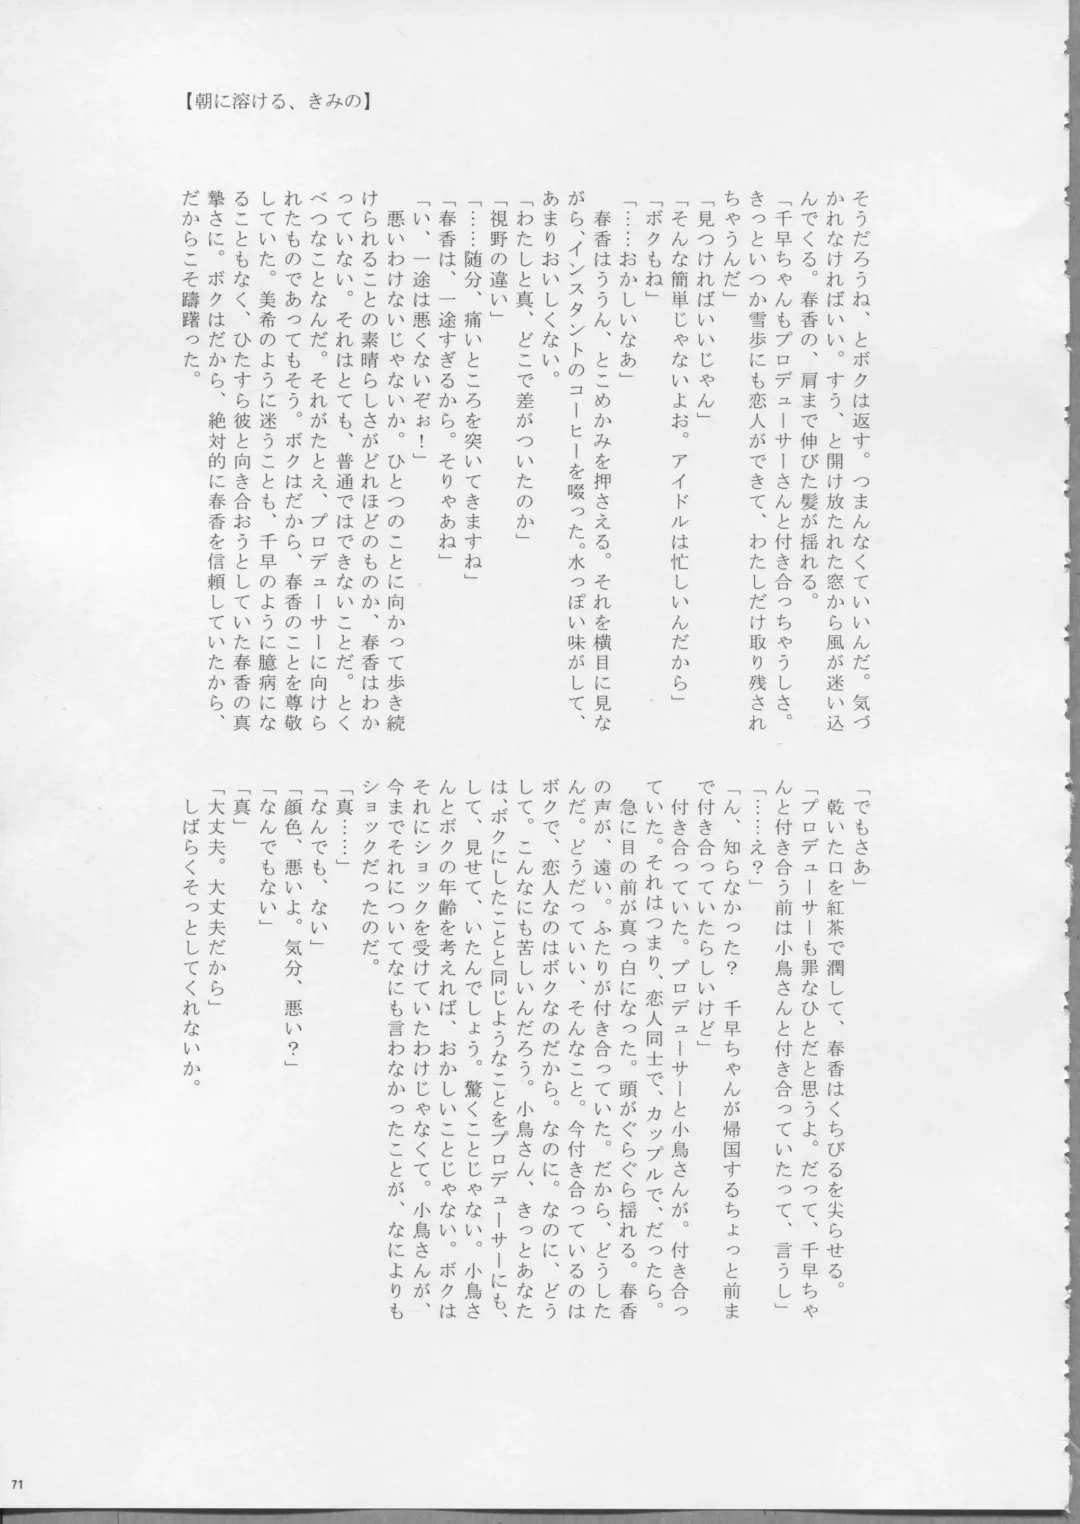 【朝に溶ける、きみの】
そうだろうね、とボクは返す。つまんなくていいんだ。気づ
かれなければいい。すう、と開け放たれた窓から風が迷い込
んでくる。春香の、肩まで伸びた髪が揺れる。
「千早ちゃんもプロデューサーさんと付き合っちゃうしさ。
きっといつか雪歩にも恋人ができて、わたしだけ取り残され
ちゃうんだ」
「見つければいいじゃん」
「そんな簡単じゃないよお。アイドルは忙しいんだから」
「ボクもね」
「……おかしいなあ」
春香はううん、とこめかみを押さえる。それを横目に見な
がら、インスタントのコーヒーを啜った。水っぽい味がして、
あまりおいしくない。
「わたしと真、どこで差がついたのか」
「視野の違い」
「……随分、痛いところを突いてきますね」
「春香は、一途すぎるから。そりゃあね」
「い、一途は悪くないぞぉ！」
悪いわけないじゃないか。ひとつのことに向かって歩き続
けられることの素晴らしさがどれほどのものか、春香はわか
っていない。それはとても、普通ではできないことだ。とく
べつなことなんだ。それがたとえ、プロデューサーに向けら
れたものであってもそう。ボクはだから、春香のことを尊敬
していた。美希のように迷うことも、千早のように臆病にな
ることもなく、ひたすら彼と向き合おうとしていた春香の真
摯さに。ボクはだから、絶対的に春香を信頼していたから、
だからこそ躊躇った。
「でもさあ」
乾いた口を紅茶で潤して、春香はくちびるを尖らせる。
「プロデューサーも罪なひとだと思うよ。だって、千早ちゃ
んと付き合う前は小鳥さんと付き合っていたって、言うし」
「……え？」
「ん、知らなかった？　千早ちゃんが帰国するちょっと前ま
で付き合っていたらしいけど」
付き合っていた。プロデューサーと小鳥さんが。付き合っ
ていた。それはつまり、恋人同士で、カップルで、だったら。
急に目の前が真っ白になった。頭がぐらぐら揺れる。春香
の声が、遠い。ふたりが付き合っていた。だから、どうした
んだ。どうだっていい、そんなこと。今付き合っているのは
ボクで、恋人なのはボクなのだから。なのに。なのに、どう
して。こんなにも苦しいんだろう。小鳥さん、きっとあなた
は、ボクにしたことと同じようなことをプロデューサーにも、
して、見せて、いたんでしょう。驚くことじゃない。小鳥さ
んとボクの年齢を考えれば、おかしいことじゃない。ボクは
それにショックを受けていたわけじゃなくて。小鳥さんが、
今までそれについてなにも言わなかったことが、なによりも
ショックだったのだ。
「真……」
「なんでも、ない」
「顔色、悪いよ。気分、悪い？」
「なんでもない」
「真」
「大丈夫。大丈夫だから」
しばらくそっとしてくれないか。
71